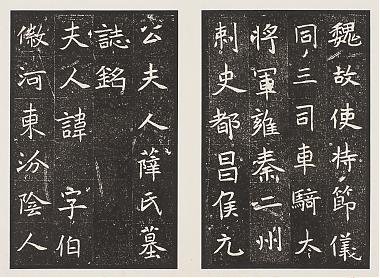 魏故使持節儀
同三司車騎太
將軍雍秦二州
刺史都昌侯元
公夫人薛氏墓
誌銘
夫人諱 字伯
徽河東汾陰人